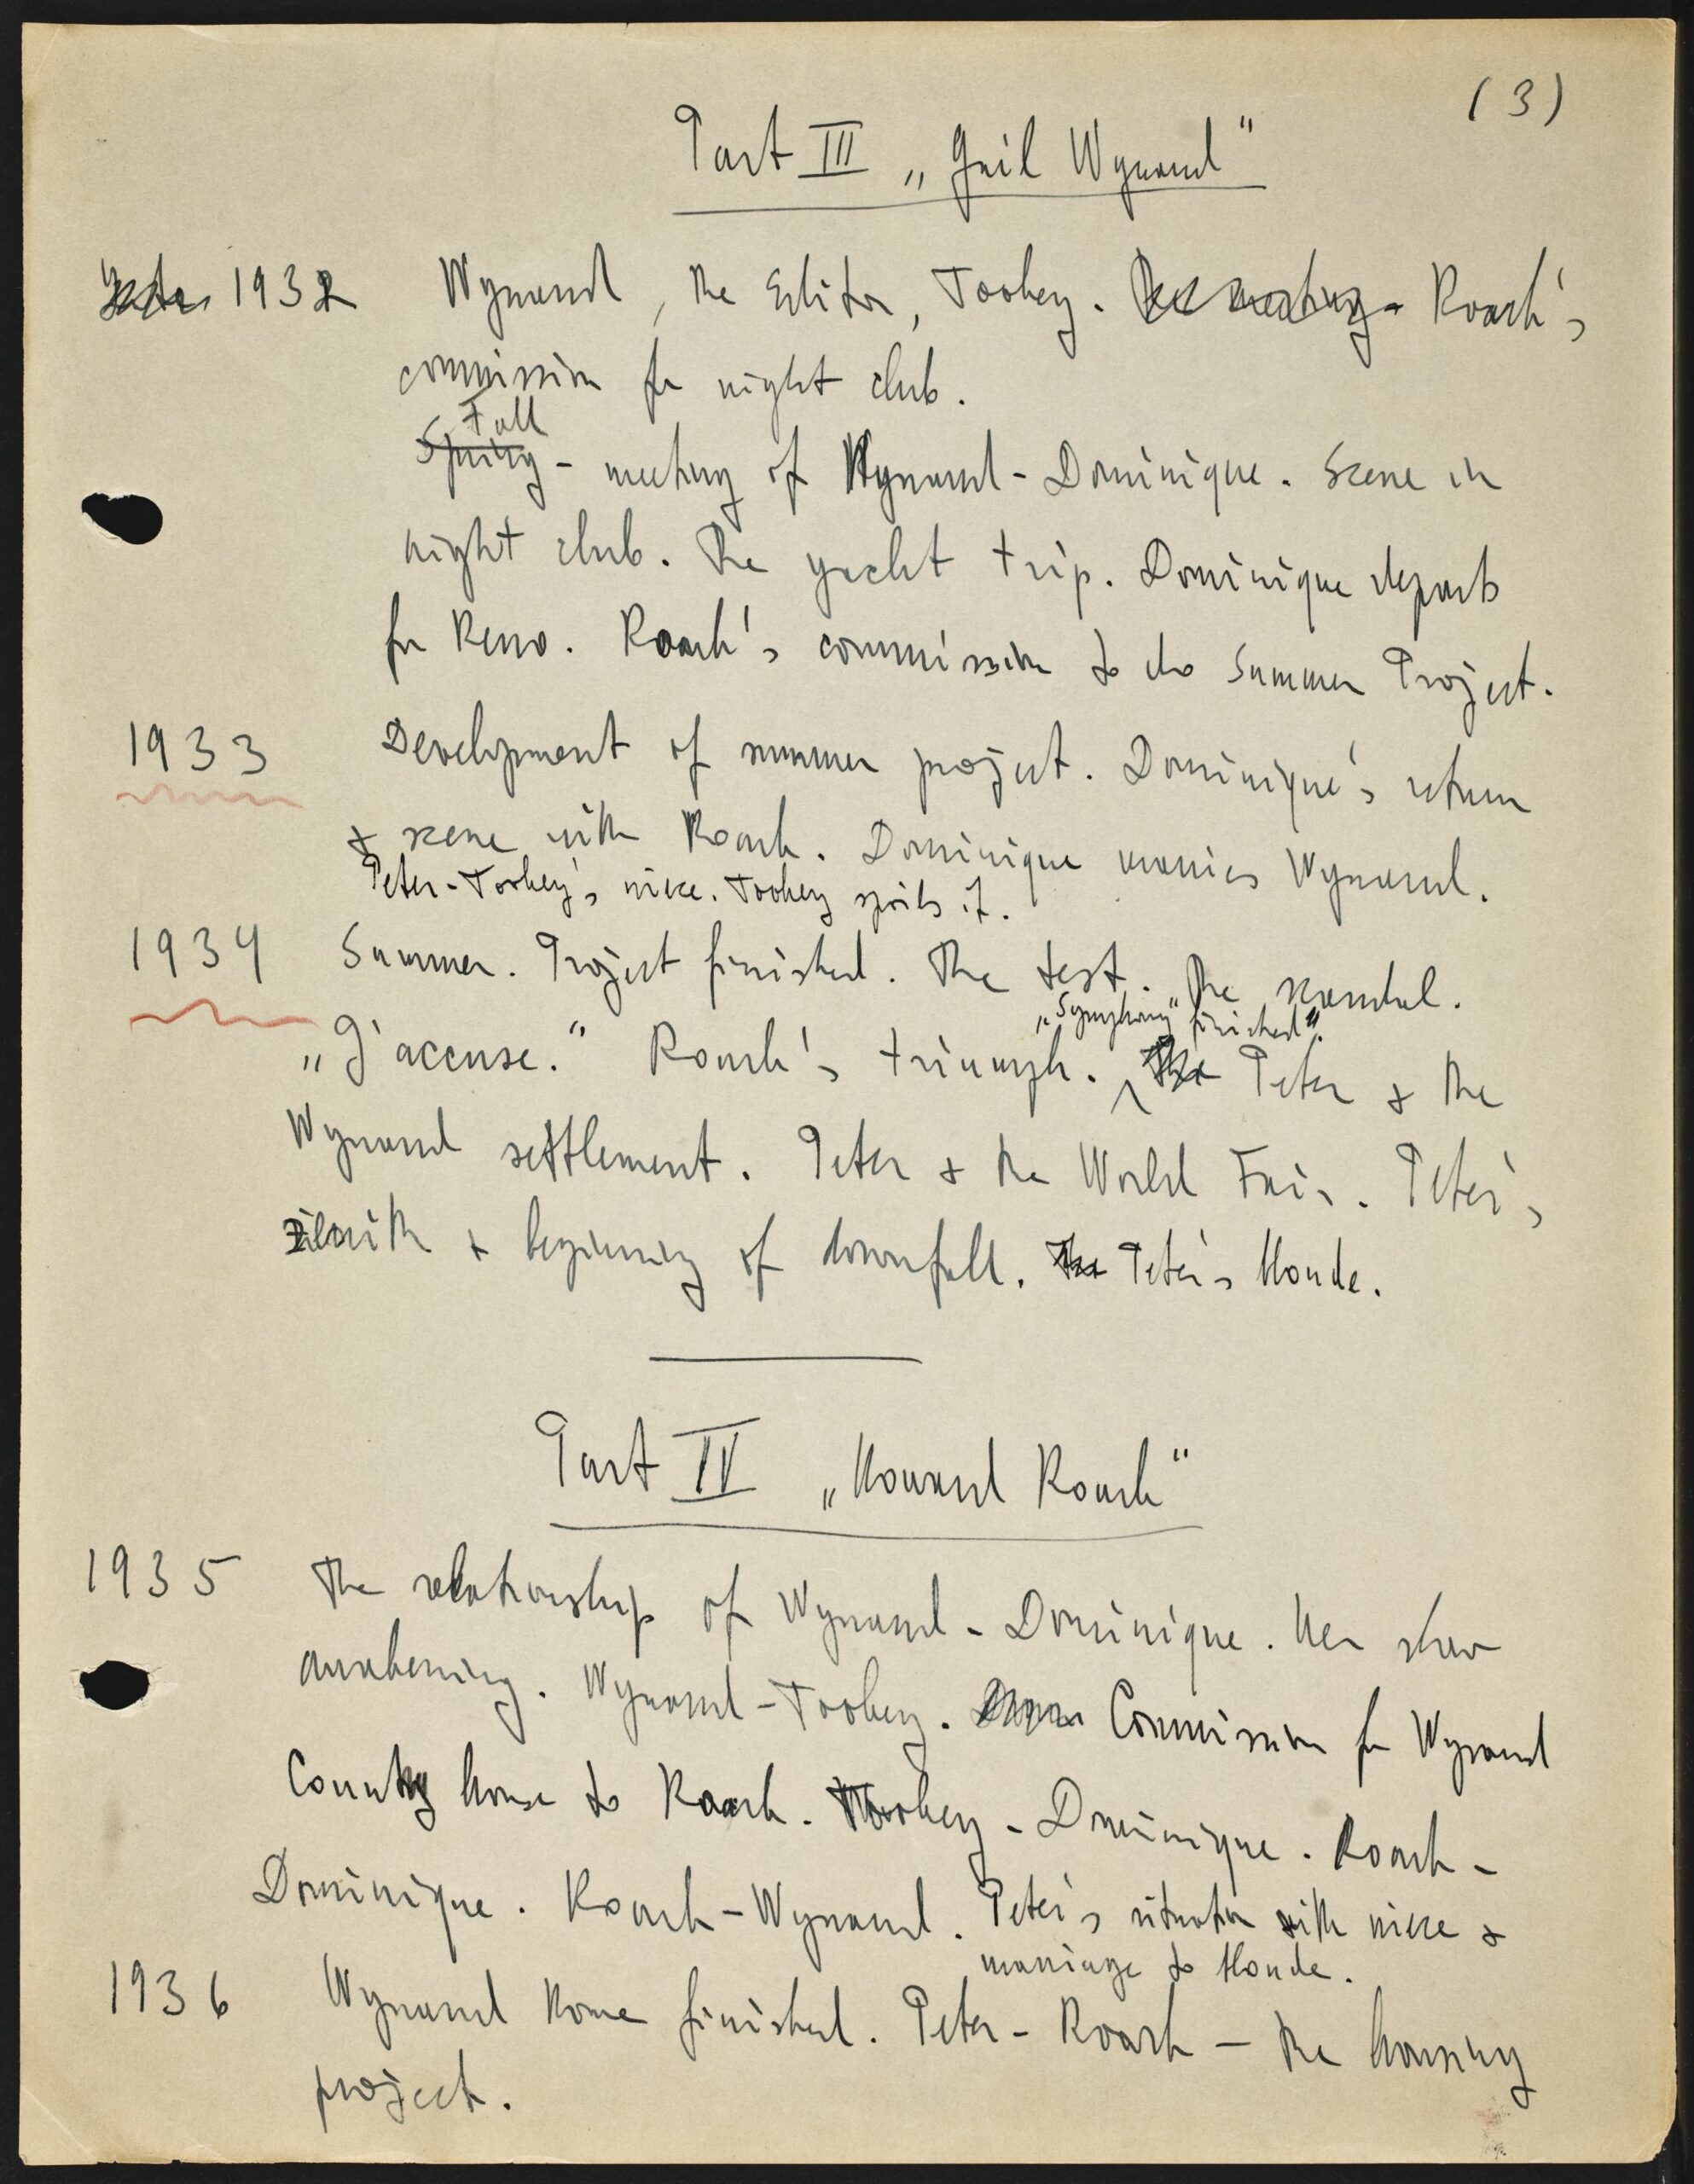 (3)
Part III „Gail Wynand"
1932 Wynand, the Editor, Toohey. Roark's
commission for night club.
Fall
Spring - meeting of Wynand - Dominique. Scene in
night club. The yacht trip. Dominique departs
for Reno. Roark's commission to do Summer Project.
1933 Development of summer project. Dominique's return
& scene with Roark. Dominique marries Wynand.
Peter - Toohey's niece. Toohey spoils it.
1934 Summer. Project finished. The test. The scandal.
„Symphony" finished".
„J'accuse." Roark's triumph. The Peter & the
Wynand settlement. Peter & the World Fair. Peter's
zenith & beginning of downfall. The Peter's blonde.
Part IV „Howard Roark"
1935 The relationship of Wynand - Dominique. Her slow
awakening. Wynand - Toohey. Commission for Wynand
Country house to Roark. Toohey - Dominique. Roark -
Dominique. Roark - Wynand. Peter's situation with niece &
marriage to blonde.
1936 Wynand home finished. Peter - Roark - the housing
project.